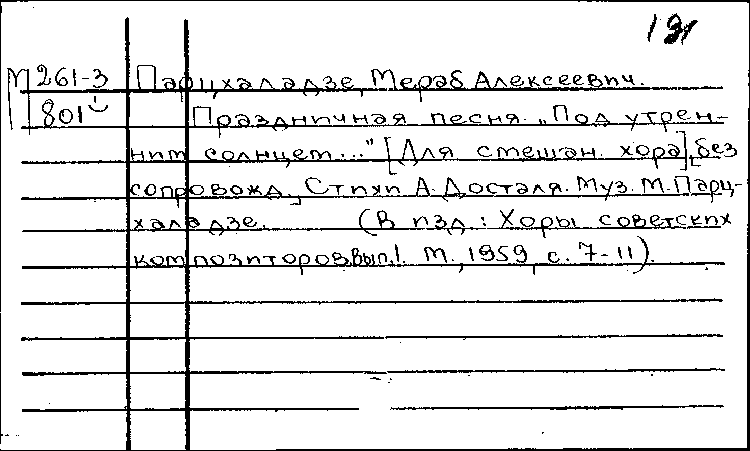 М 261-3 Парцхаладзе, Мераб Алексеевич.
801 Праздничная песня. „Под утрен-
ним солнцем..." [Для смешан. хора], без
сопровожд. Стихи А. Досталя. Муз. М. Парц-
халадзе. (В изд.: Хоры советских
композиторов, Вып. 1. М., 1959, с. 7-11).